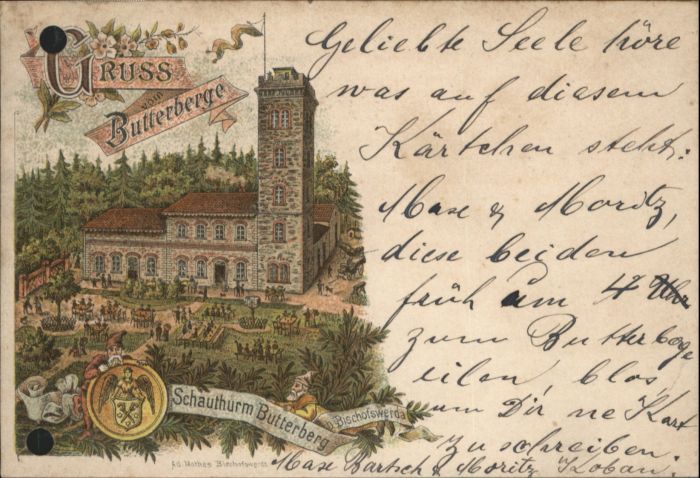 GRUSS
vom
Butterberge
Geliebte Seele höre
was auf diesem
Kärtchen steht:
Maxe & Moritz,
diese beiden
früh um 4 Uhr
zum Butterberge
eilen, blos,
um Dir ne Kart
zu schreiben.
Maxe Bartsch & Moritz Koban.
Schauthurm Butterberg
b/ Bischofswerda
Ad. Mathes Bischofswerda